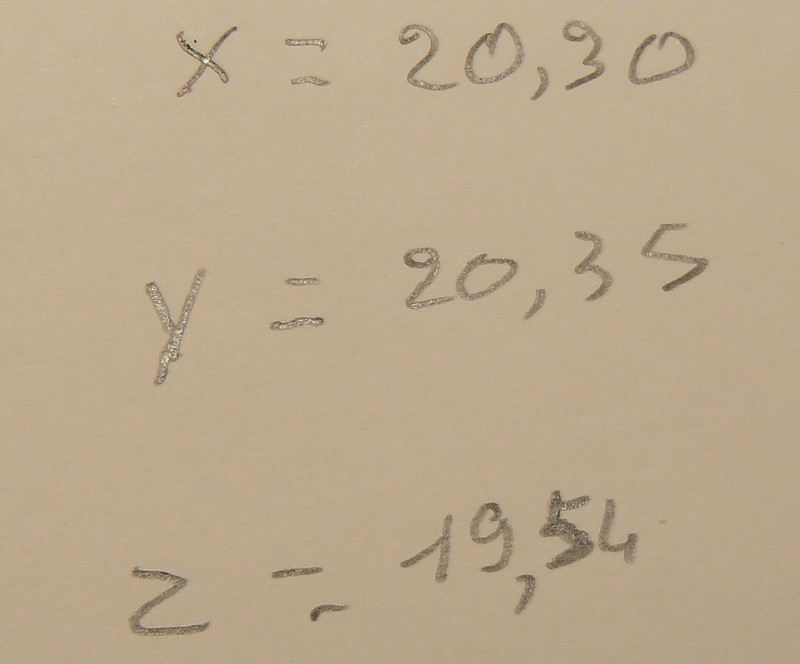 x = 20,30
y = 20,35
z = 19,54